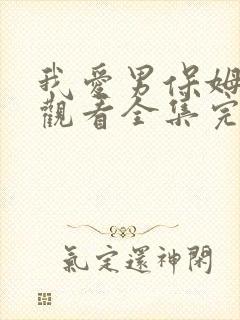 我愛男保姆
觀看全集完
氣定還神閑